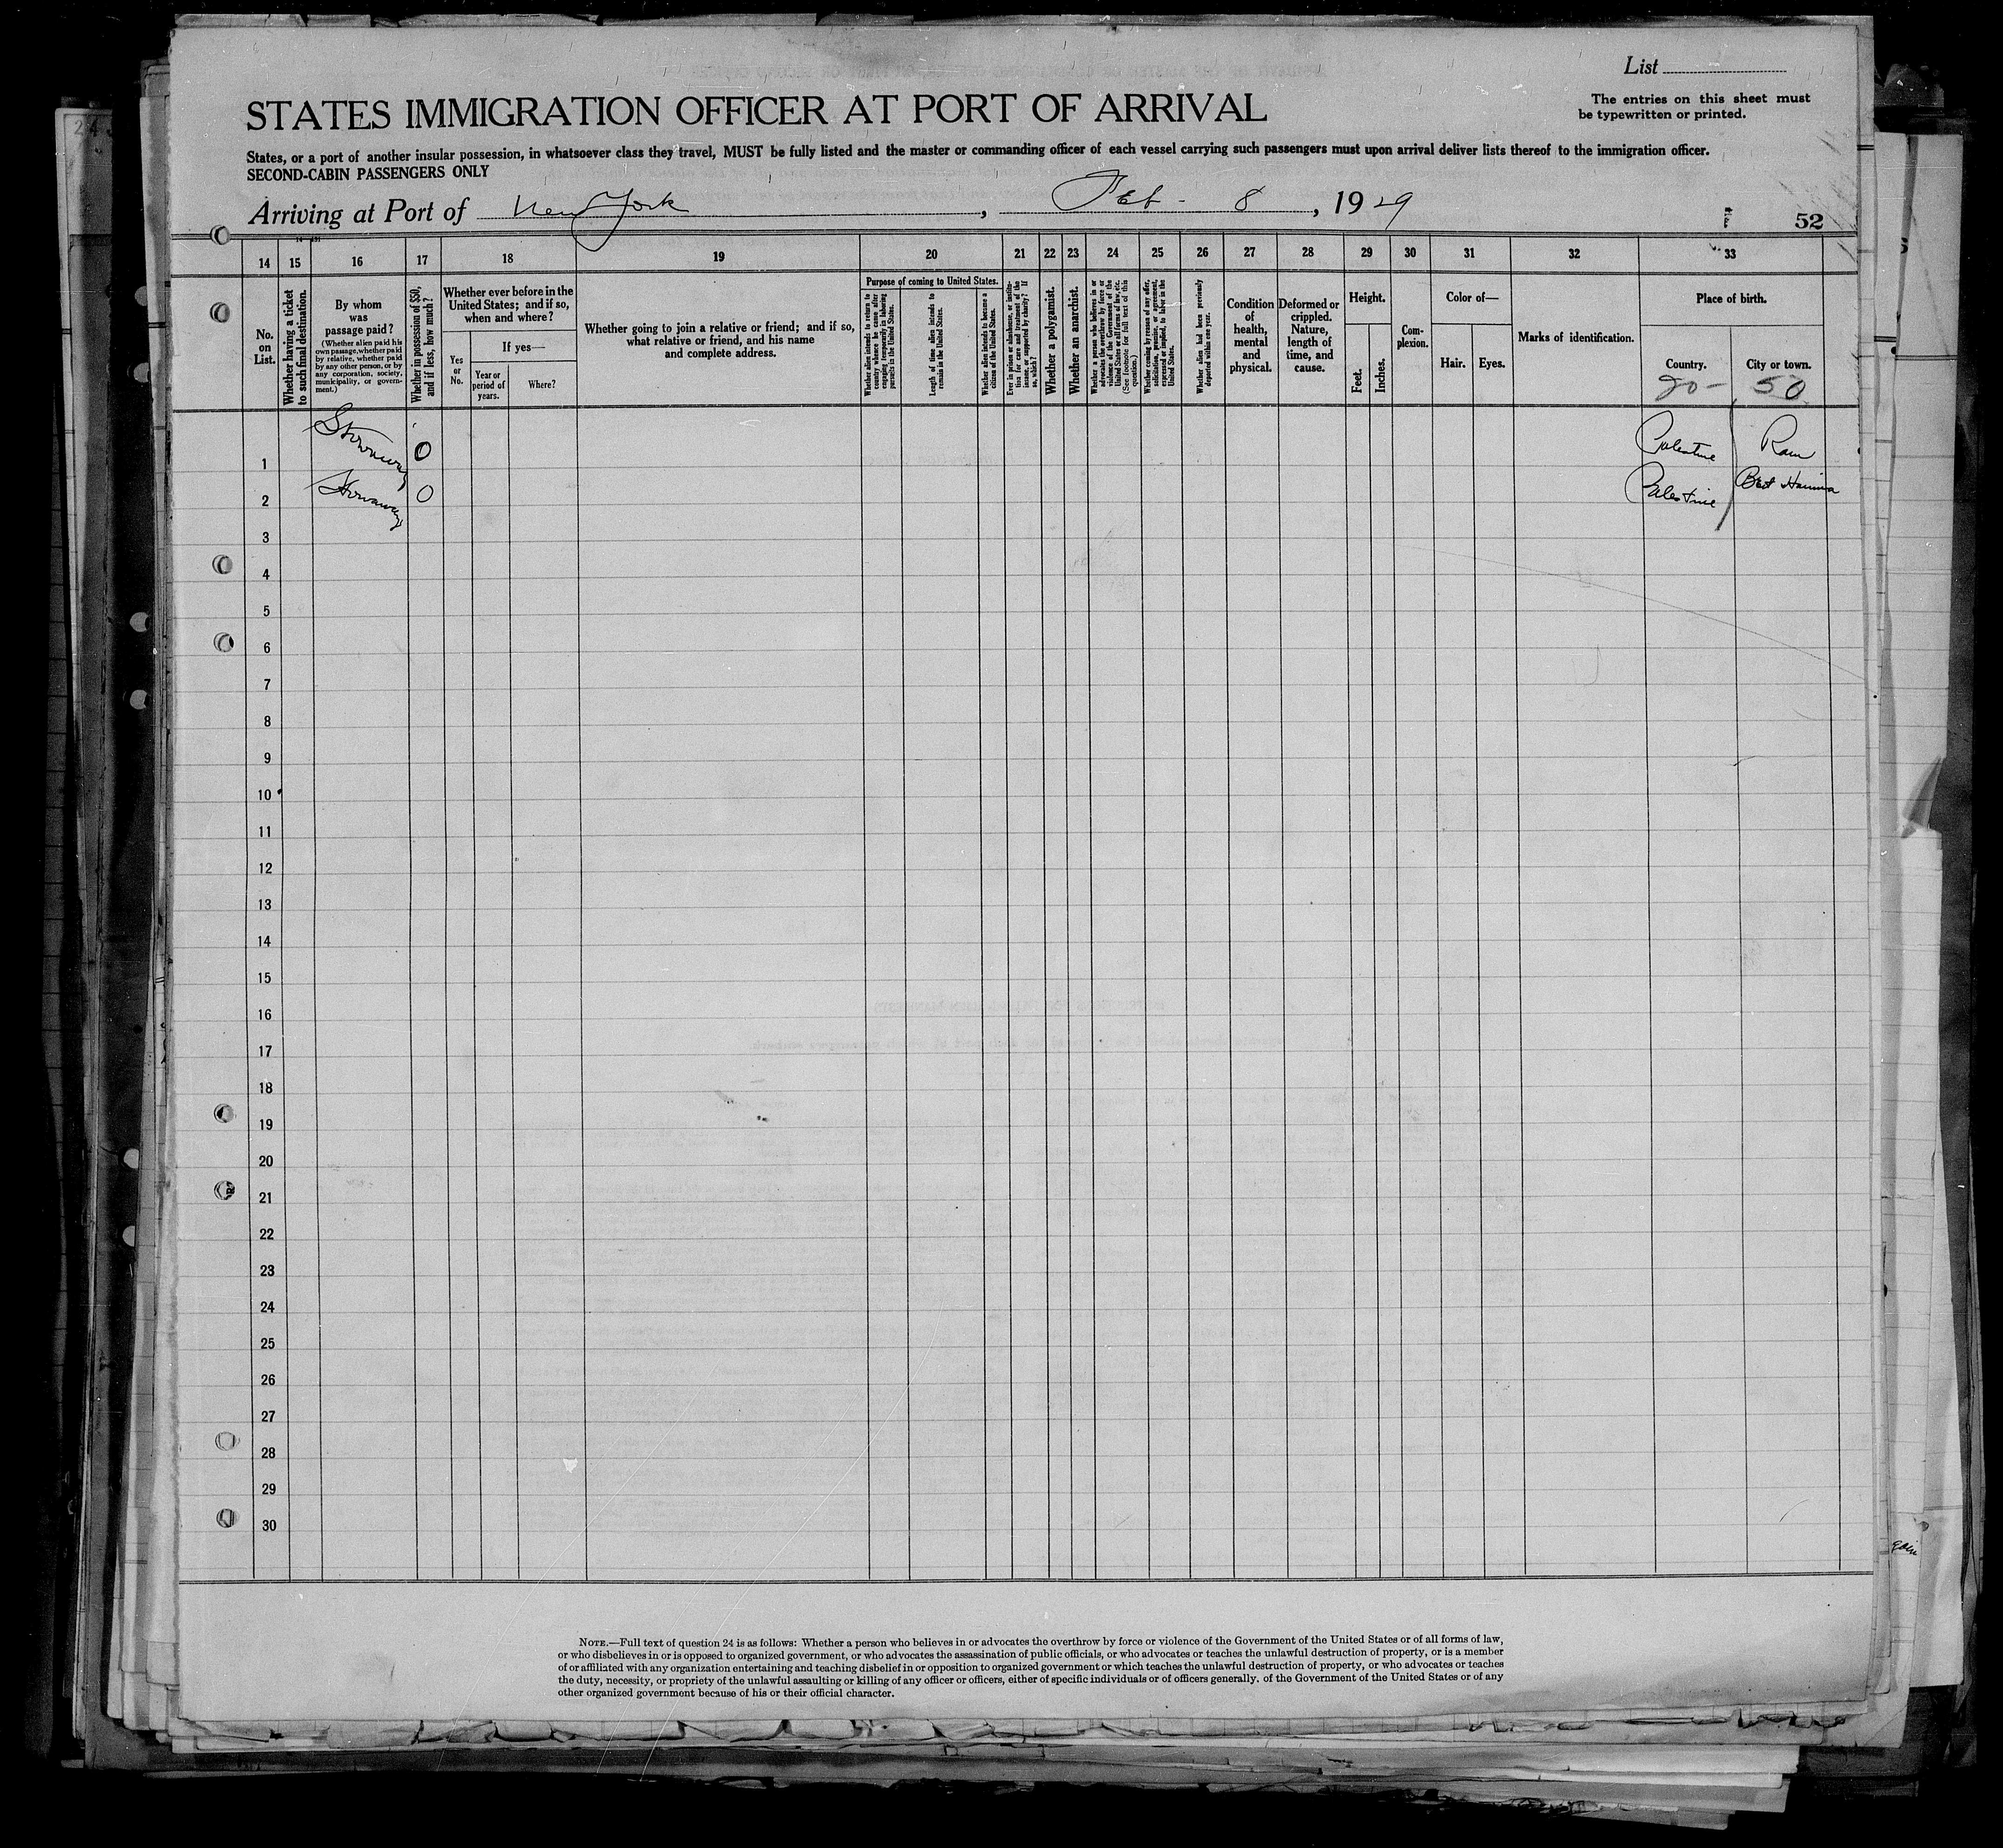 List
STATES IMMIGRATION OFFICER AT PORT OF ARRIVAL
The entries on this sheet must
be typewritten or printed.
States, or a port of another insular possession, in whatsoever class they travel, MUST be fully listed and the master or commanding officer of each vessel carrying such passengers must upon arrival deliver lists thereof to the immigration officer.
SECOND-CABIN PASSENGERS ONLY
Arriving at Port of New York, Feb - 8, 1929
52
14 15 16 17 18 19 20 21 22 23 24 25 26 27 28 29 30 31 32 33
No.
on
List.
Whether having a ticket
to such final destination.
By whom
was
passage paid?
(Whether alien paid his
own passage, whether paid
by relative, whether paid
by any other person, or by
any corporation, society,
municipality, or govern-
ment.)
Whether in possession of $50,
and if less, how much?
Whether ever before in the
United States; and if so,
when and where?
Yes
or
No.
If yes—
Year or
period of
years.
Where?
Whether going to join a relative or friend; and if so,
what relative or friend, and his name
and complete address.
Purpose of coming to United States.
Whether alien intends to return to
country whence he came after
engaging temporarily in laboring
pursuits in the United States.
Length of time alien intends to
remain in the United States.
Whether alien intends to become a
citizen of the United States.
Ever in prison or almshouse, or institu-
tion for care and treatment of the
insane, or supported by charity? If
so, which?
Whether a polygamist.
Whether an anarchist.
Whether a person who believes in or
advocates the overthrow by force or
violence of the Government of the
United States or all forms of law, etc.
(See footnote for full text of this
question.)
Whether coming by reason of any offer,
solicitation, promise, or agreement,
expressed or implied, to labor in the
United States.
Whether alien had been previously
deported within one year.
Condition
of
health,
mental
and
physical.
Deformed or
crippled.
Nature,
length of
time, and
cause.
Height.
Feet.
Inches.
Com-
plexion.
Color of—
Hair.
Eyes.
Marks of identification.
Place of birth.
Country.
City or town.
20- 50
1 Stowaway 0 Palestine Ram
2 Stowaway 0 Palestine Beit Hanina
3
4
5
6
7
8
9
10
11
12
13
14
15
16
17
18
19
20
21
22
23
24
25
26
27
28
29
30
NOTE.—Full text of question 24 is as follows: Whether a person who believes in or advocates the overthrow by force or violence of the Government of the United States or of all forms of law,
or who disbelieves in or is opposed to organized government, or who advocates the assassination of public officials, or who advocates or teaches the unlawful destruction of property, or is a member
of or affiliated with any organization entertaining and teaching disbelief in or opposition to organized government or which teaches the unlawful destruction of property, or who advocates or teaches
the duty, necessity, or propriety of the unlawful assaulting or killing of any officer or officers, either of specific individuals or of officers generally, of the Government of the United States or of any
other organized government because of his or their official character.